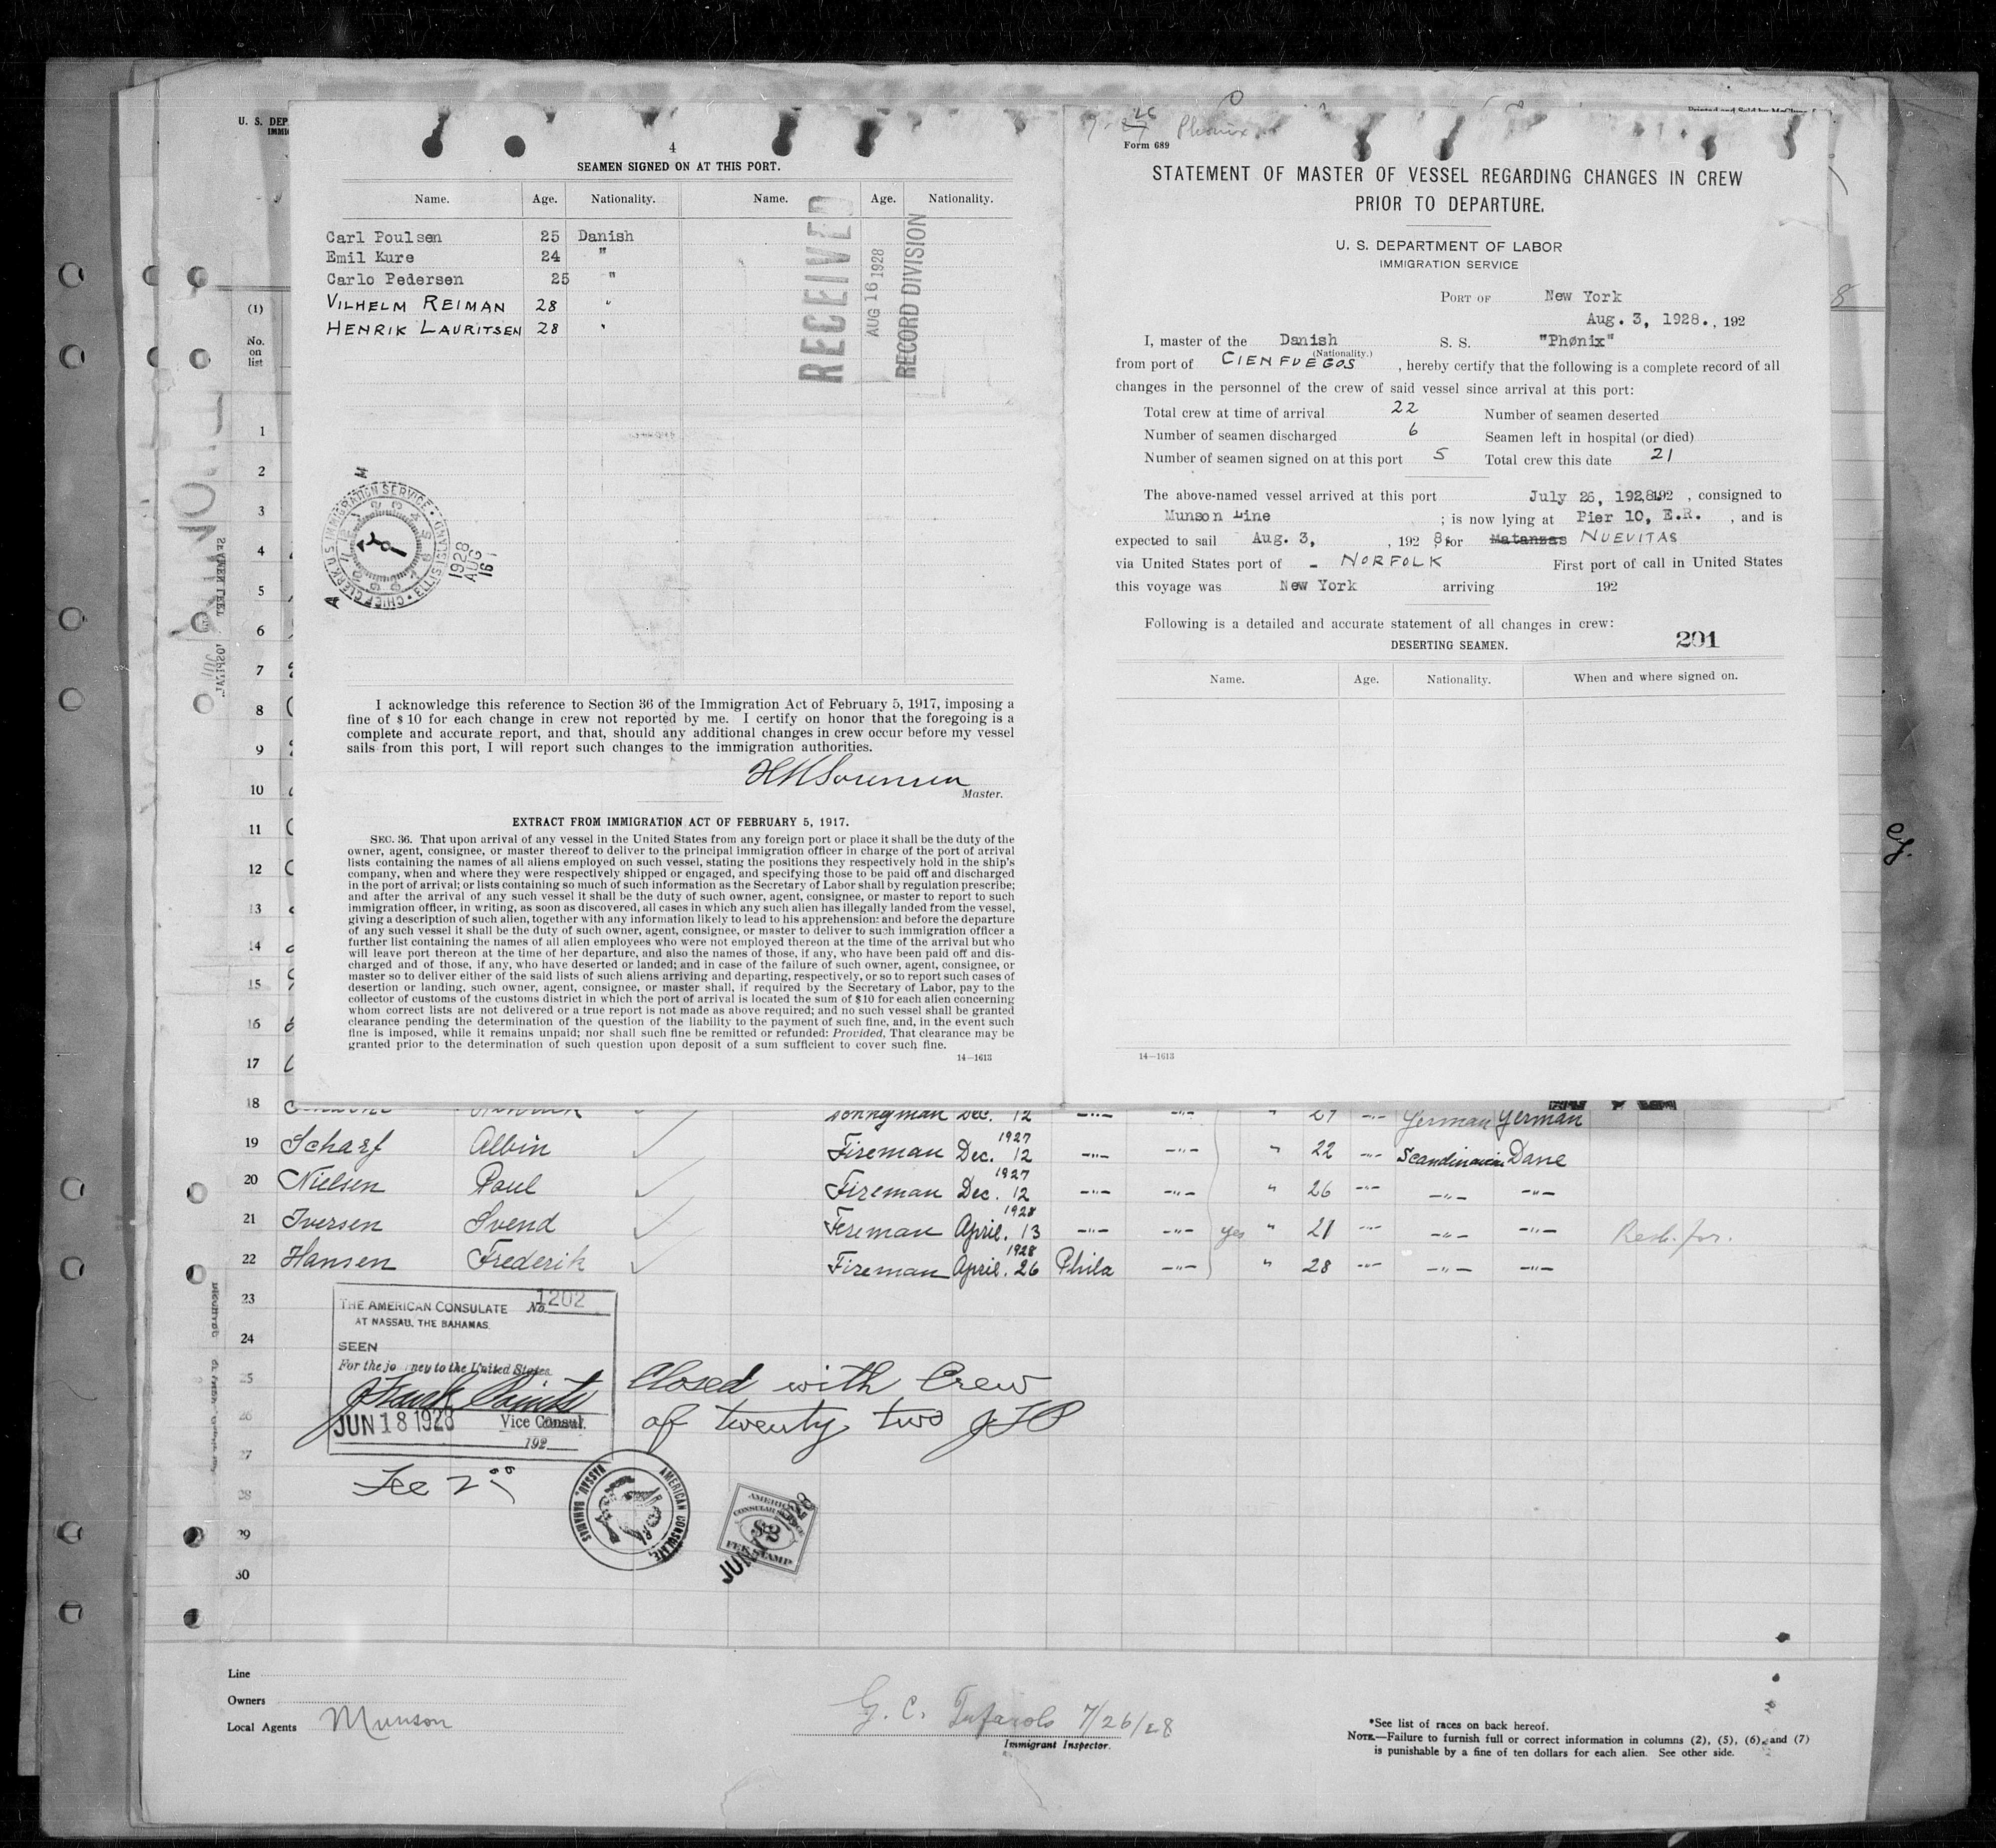 U. S. DEP
4
SEAMEN SIGNED ON AT THIS PORT.
Name. Age. Nationality. Name. Age. Nationality.
Carl Poulsen 25 Danish
Emil Kure 24 "
Carlo Pedersen 25 "
VILHELM REIMAN 28 "
HENRIK LAURITSEN 28 "
RECEIVED
AUG 16 1928
RECORD DIVISION
CHIEF CLERK U.S. IMMIGRATION SERVICE • ELLIS ISLAND •
1928
AUG
16
I acknowledge this reference to Section 36 of the Immigration Act of February 5, 1917, imposing a
fine of $10 for each change in crew not reported by me. I certify on honor that the foregoing is a
complete and accurate report, and that, should any additional changes in crew occur before my vessel
sails from this port, I will report such changes to the immigration authorities.
HHSorensen
Master.
EXTRACT FROM IMMIGRATION ACT OF FEBRUARY 5, 1917.
SEC. 36. That upon arrival of any vessel in the United States from any foreign port or place it shall be the duty of the
owner, agent, consignee, or master thereof to deliver to the principal immigration officer in charge of the port of arrival
lists containing the names of all aliens employed on such vessel, stating the positions they respectively hold in the ship's
company, when and where they were respectively shipped or engaged, and specifying those to be paid off and discharged
in the port of arrival; or lists containing so much of such information as the Secretary of Labor shall by regulation prescribe;
and after the arrival of any such vessel it shall be the duty of such owner, agent, consignee, or master to report to such
immigration officer, in writing, as soon as discovered, all cases in which any such alien has illegally landed from the vessel,
giving a description of such alien, together with any information likely to lead to his apprehension: and before the departure
of any such vessel it shall be the duty of such owner, agent, consignee, or master to deliver to such immigration officer a
further list containing the names of all alien employees who were not employed thereon at the time of the arrival but who
will leave port thereon at the time of her departure, and also the names of those, if any, who have been paid off and dis-
charged and of those, if any, who have deserted or landed; and in case of the failure of such owner, agent, consignee, or
master so to deliver either of the said lists of such aliens arriving and departing, respectively, or so to report such cases of
desertion or landing, such owner, agent, consignee, or master shall, if required by the Secretary of Labor, pay to the
collector of customs of the customs district in which the port of arrival is located the sum of $10 for each alien concerning
whom correct lists are not delivered or a true report is not made as above required; and no such vessel shall be granted
clearance pending the determination of the question of the liability to the payment of such fine, and, in the event such
fine is imposed, while it remains unpaid; nor shall such fine be remitted or refunded: Provided, That clearance may be
granted prior to the determination of such question upon deposit of a sum sufficient to cover such fine.
14—1613
Phönix
Form 689
STATEMENT OF MASTER OF VESSEL REGARDING CHANGES IN CREW
PRIOR TO DEPARTURE.
U. S. DEPARTMENT OF LABOR
IMMIGRATION SERVICE
PORT OF New York
Aug. 3, 1928. , 192
I, master of the Danish S. S. "Phønix"
(Nationality.)
from port of CIENFUEGOS , hereby certify that the following is a complete record of all
changes in the personnel of the crew of said vessel since arrival at this port:
Total crew at time of arrival 22 Number of seamen deserted
Number of seamen discharged 6 Seamen left in hospital (or died)
Number of seamen signed on at this port 5 Total crew this date 21
The above-named vessel arrived at this port July 26, 1928, 192 , consigned to
Munson Line ; is now lying at Pier 10, E.R. , and is
expected to sail Aug. 3, , 192 8, for Matanzas NUEVITAS
via United States port of - NORFOLK First port of call in United States
this voyage was New York arriving 192
Following is a detailed and accurate statement of all changes in crew:
291
DESERTING SEAMEN.
Name. Age. Nationality. When and where signed on.
14—1613
(1)
No.
on
list
1
2
3
4
5
6
7
8
9
10
11
12
13
14
15
16
17
18 Dec. 12 -"- -"- " 27 -"- German German
19 Scharf Albin Fireman Dec. 12 1927 -"- -"- " 22 -"- Scandinavian Dane
20 Nielsen Poul Fireman Dec. 12 1927 -"- -"- " 26 -"- -"- -"-
21 Iversen Svend Fireman April. 13 1928 -"- -"- yes " 21 -"- -"- -"-
22 Hansen Frederik Fireman April. 26 1928 Phila -"- " 28 -"- -"- -"-
23
24
25
26
27
28
29
30
THE AMERICAN CONSULATE No. 1202
AT NASSAU, THE BAHAMAS.
SEEN
For the jo ney to the United States
JUN 18 1928 Vice Consul.
192
Closed with Crew
of twenty two JFP
Fee 2.00
AMERICAN CONSULATE, NASSAU, BAHAMAS
AMERICAN
CONSULAR SERVICE
$2
FEE STAMP
JUN 18 1928
Line
Owners
Local Agents Munson
G. C. 7/26/28
Immigrant Inspector.
*See list of races on back hereof.
NOTE.—Failure to furnish full or correct information in columns (2), (5), (6), and (7)
is punishable by a fine of ten dollars for each alien. See other side.